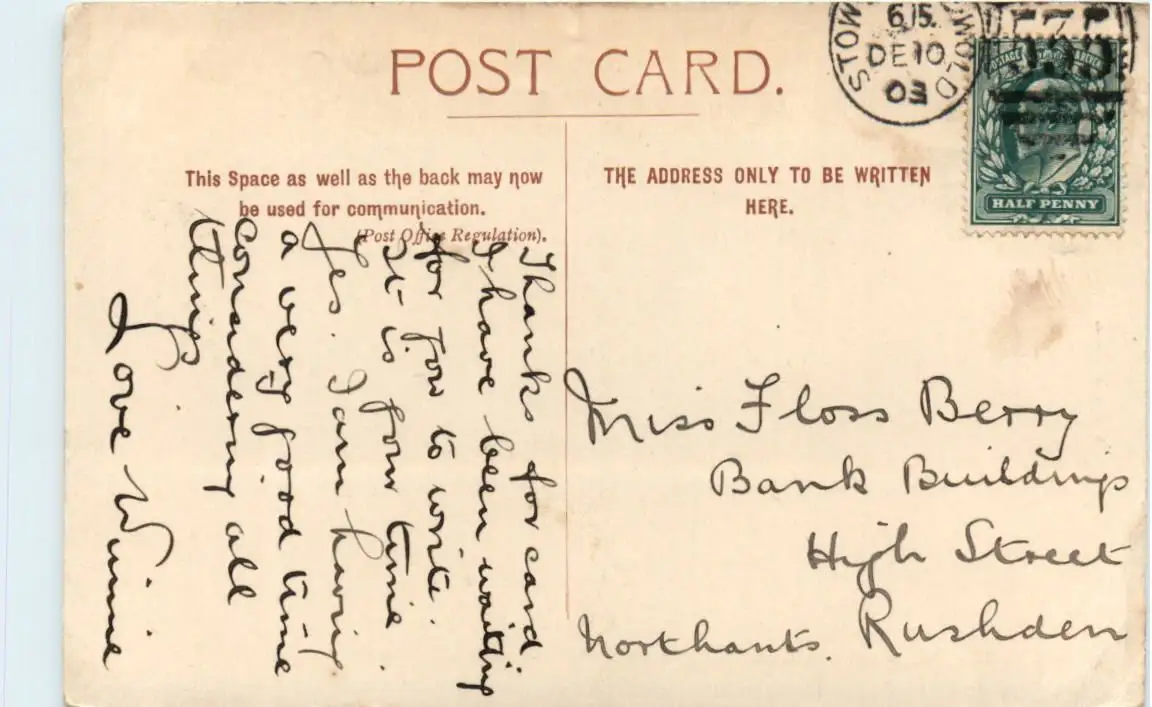 POST CARD.
This Space as well as the back may now
be used for communication.
(Post Office Regulation).
THE ADDRESS ONLY TO BE WRITTEN
HERE.
STOW WOLD
6.15.
DE 10
03
POSTAGE
HALF PENNY
Thanks for card
I have been waiting
for you to write.
It is your time.
Yes. I am having
a very good time
considering all
things
Love Winnie
Miss Floss Berry
Bank Buildings
High Street
Rushden
Northants.